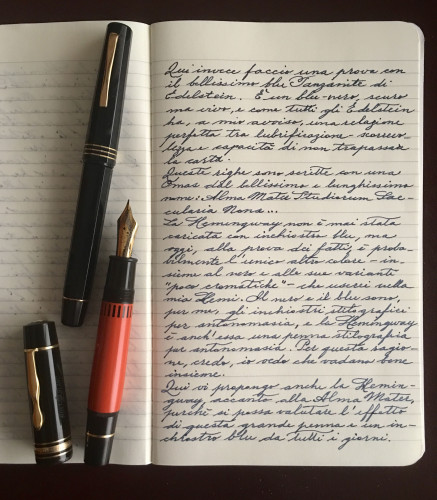 Qui invece faccio una prova con
il bellissimo blu Tanzanite di
Edelstein. È un blu-nero, scuro
ma vivo, e come tutti gli Edelstein
ha, a mio avviso, una relazione
perfetta tra lubrificazione-scorrevo-
lezza e capacità di non trapassare
la carta.
Queste righe sono scritte con una
Omas dal bellissimo e lunghissimo
nome: Alma Mater Studiorum Sae-
cularia Nona...
La Hemingway non è mai stata
caricata con inchiostro blu, ma
oggi, alla prova dei fatti, è proba-
bilmente l'unico altro colore - in-
sieme al nero e alle sue varianti
"poco cromatiche" - che userei nella
mia Hemi. Il nero e il blu sono,
per me, gli inchiostri stilografici
per antonomasia, e la Hemingway
è anch'essa una penna stilografica
per antonomasia. Per questa ragio-
ne, credo, io vedo che vadano bene
insieme.
Qui vi propongo anche la Hemin-
gway, accanto alla Alma Mater,
perché si possa valutare l'effetto
di questa grande penna e un in-
chiostro blu da tutti i giorni.